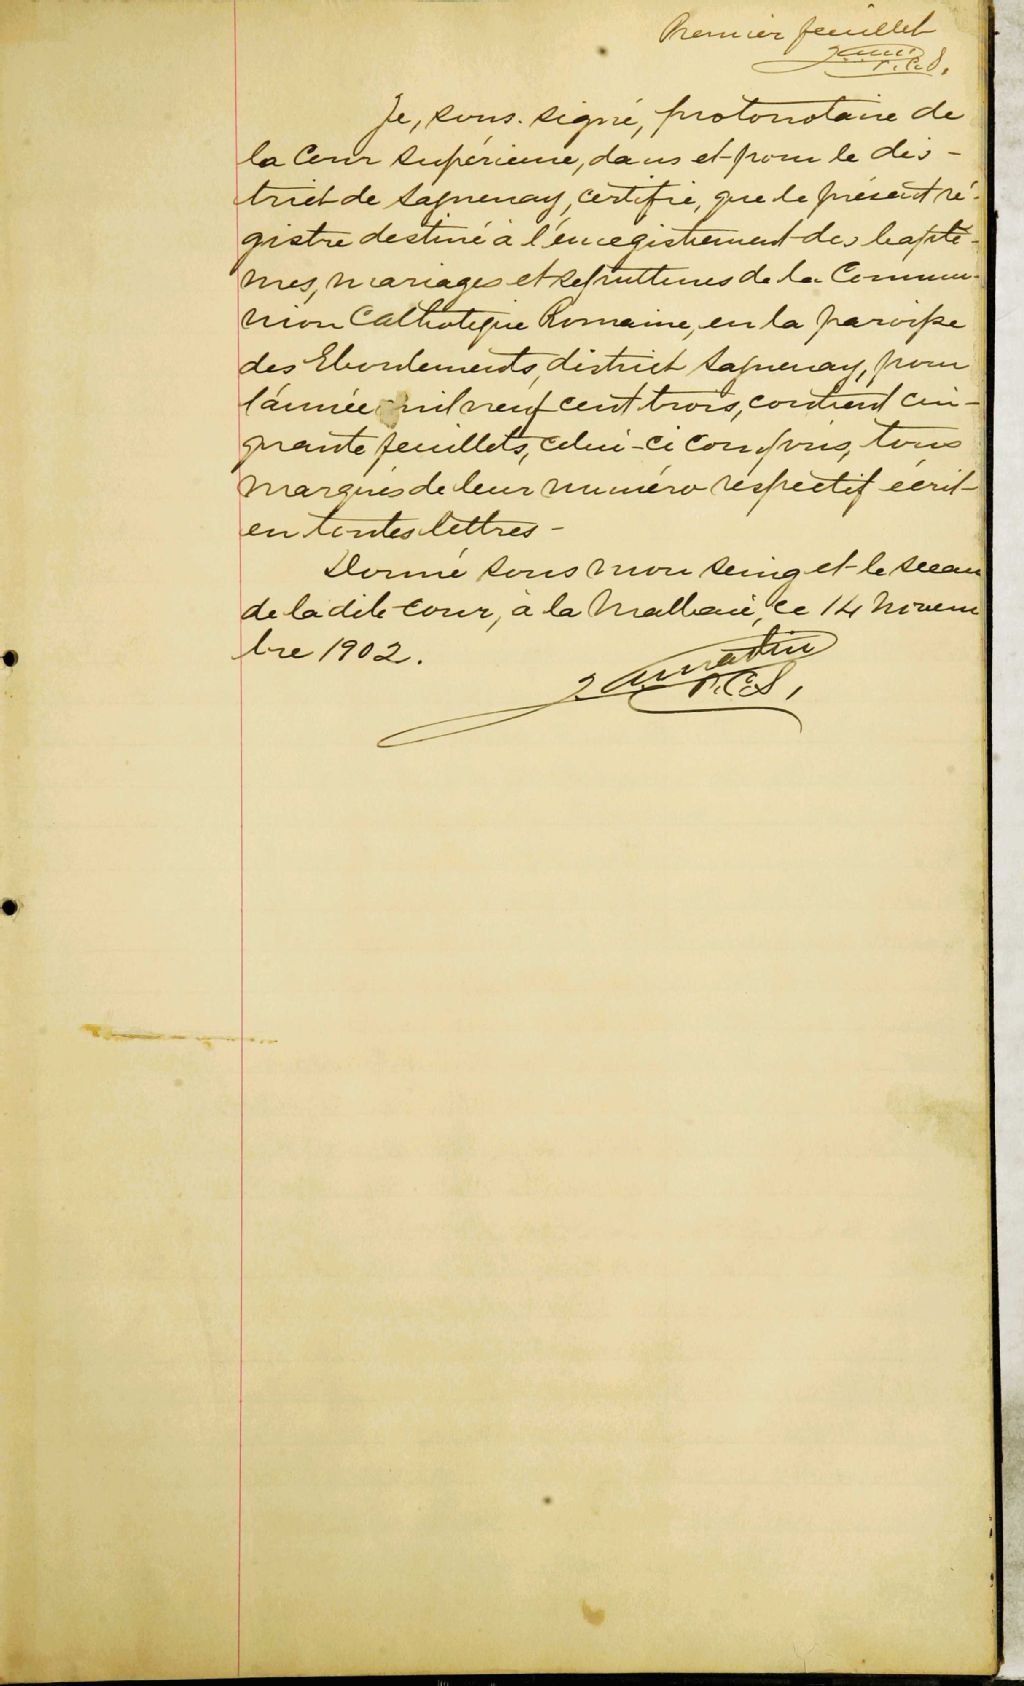 Premier feuillet
P.C.S.
Je, sous-signé, protonotaire de
la Cour Supérieure, dans et pour le dis-
trict de Saguenay, certifie, que le présent ré-
gistre destiné à l'enregistrement des baptê-
mes, mariages et sépultures de la Commu-
nion Catholique Romaine, en la paroisse
des Eboulements, district Saguenay, pour
l'année mil neuf cent trois, contient cin-
quante feuillets, celui-ci compris, tous
marqués de leur numéro respectif écrit
en toutes lettres-
Donné sous mon seing et le sceau
de la dite Cour, à la Malbaie, ce 14 novem
bre 1902.
P.C.S.